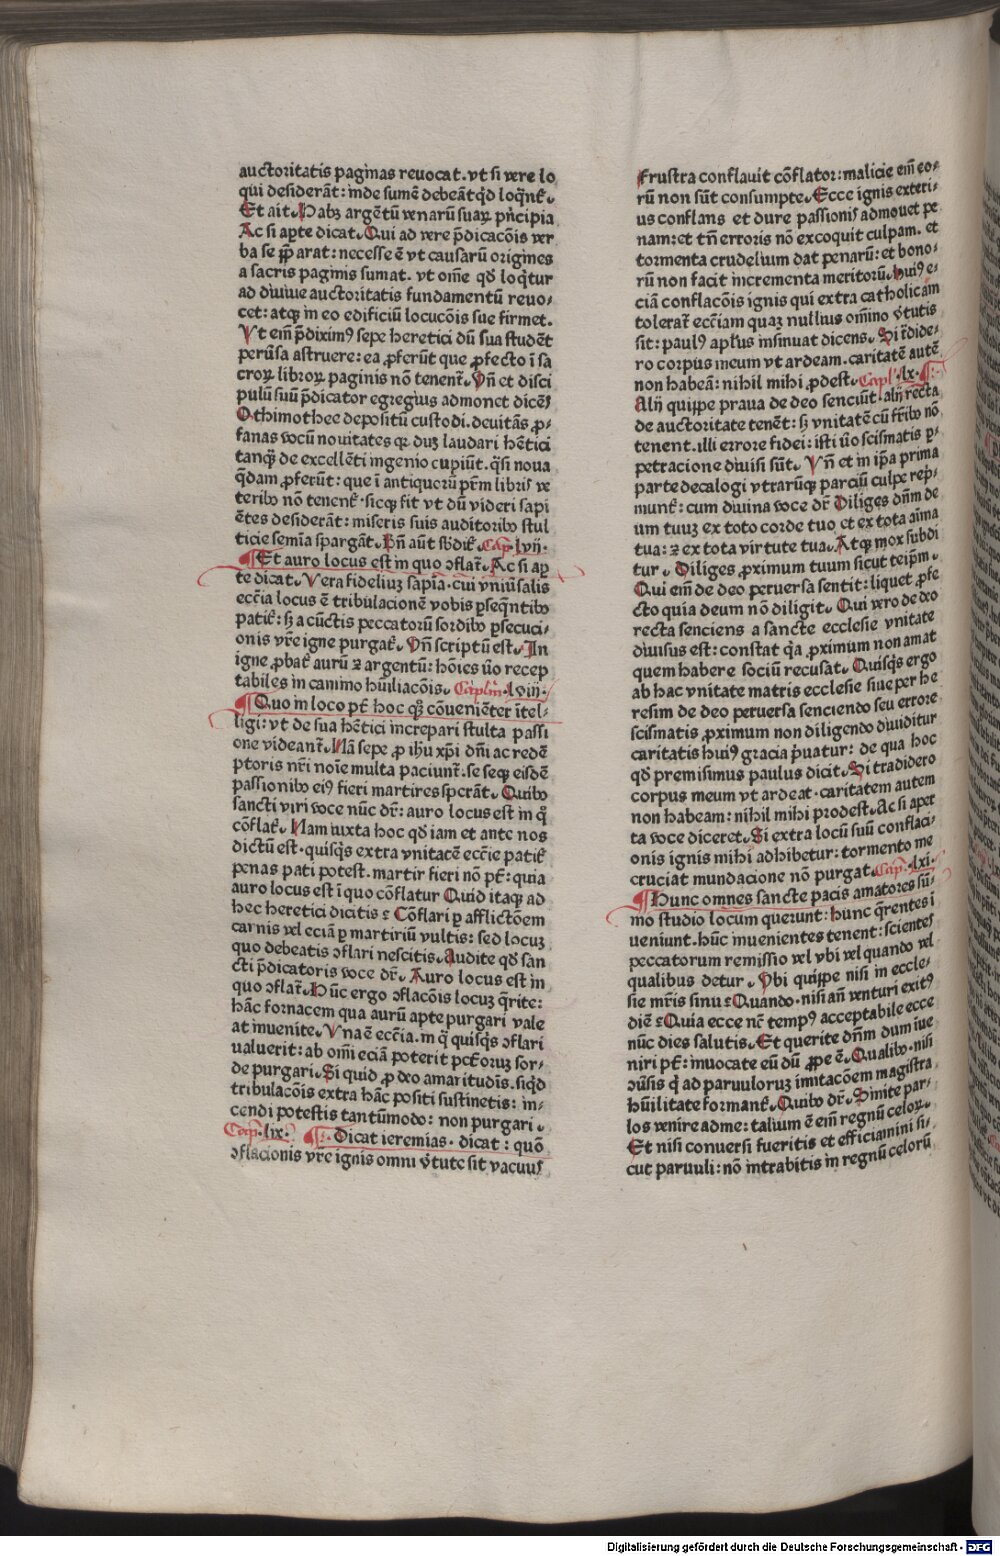 auctoritatis paginas reuocat. vt si vere lo
qui desiderāt: inde sumē debeāt qd̄ loqn̄t᷑.
Et ait. Habꝫ argētū venarū suaꝝ pn̄cipia
Ac si apte dicat. Qui ad vere p̄dicacōis ver
ba se pp̄arat: necesse ē vt causarū origines
a sacris paginis sumat. vt om̄e qd̄ loqt᷑ur
ad diuine auctoritatis fundamentū reuo-
cet: atqꝫ in eo edificiū locucōis sue firmet.
Vt em̄ p̄diximꝰ sepe heretici dū sua studēt
perūsa astruere: ea ꝓferūt que ꝓfecto ī sa
croꝝ libroꝝ paginis nō tenent᷑. Vn̄ et disci
pulū suū p̄dicator egregius admonet dicēs
O thimothee depositū custodi. deuitās ꝓ-
fanas vocū nouitates qꝛ duꝫ laudari hētici
tanqꝫ de excellēti ingenio cupiūt. qsi noua
qdam ꝓferūt: que ī antiquorū pr̄m libris ve
teribꝰ nō tenent᷑. sicqꝫ fit vt dū videri sapi
ētes desiderāt: miseris suis auditoribꝰ stul
ticie semīa spargāt. Pn̄ aūt sb̄dit᷑. Cap. lvij.
Et auro locus est in quo ɔflat᷑. Ac si aꝑ
te dicat. Vera fideliuꝫ sapīa. cui vniūsalis
ecc̄ia locus ē tribulacionē vobis ꝑseqn̄tibꝰ
patit᷑: sꝫ a cūctis peccatorū sordibꝰ ꝑsecuci-
onis vr̄e igne purgat᷑. Vn̄ scriptū est. In
igne ꝓbat᷑ aurū ⁊ argentū: hoīes ūo recep
tabiles in camino hūiliacōis. Capl̄m. lviij.
Quo in loco pt᷑ hoc qꝫ cōueniēter ītel-
ligi: vt de sua hētici increpari stulta passi
one videant᷑. Nā sepe ꝓ ihū xp̄i dn̄i ac redē
ptoris nr̄i noīe multa paciunt᷑. se seqꝫ eisdē
passionibꝰ eiꝰ fieri martires sperāt. Quibꝰ
sancti viri voce nūc dr̄: auro locus est in q̄
cōflat᷑. Nam iuxta hoc qd̄ iam et ante nos
dictū est. quisqs extra vnitatē ecc̄ie patit᷑
penas pati potest. martir fieri nō pt᷑: quia
auro locus est ī quo cōflatur Quid itaqꝫ ad
hec heretici dicitis? Cōflari ꝑ afflictōem
carnis vel eciā ꝑ martiriū vultis: sed locuꝫ
quo debeatis ɔflari nescitis. Audite qd̄ san
cti p̄dicatoris voce dr̄. Auro locus est in
quo ɔflat᷑. Hūc ergo ɔflacōis locuꝫ qrite:
hāc fornacem qua aurū apte purgari vale
at inuenite. Vna ē ecc̄ia. in q̄ quisqs ɔflari
ualuerit: ab om̄i eciā poterit pctōruꝫ sor-
de purgari. Si quid ꝓ deo amaritudīs. siqd
tribulacōis extra hāc positi sustinetis: in-
cendi potestis tantūmodo: non purgari.
Cap. lix. Dicat ieremias. dicat: quō
ɔflacionis vr̄e ignis omni v̄tute sit vacuus
Frustra conflauit cōflator: malicie em̄ eo-
rū non sūt consumpte. Ecce ignis exteri-
us conflans et dure passionis admouet pe
nam: et tn̄ erroris nō excoquit culpam. et
tormenta crudelium dat penarū: et bono-
rū non facit incrementa meritorū. huiꝰ e-
ciā conflacōis ignis qui extra catholicam
tolerat᷑ ecc̄iam quaꝫ nullius om̄ino v̄tutis
sit: paulꝰ apl̄us insinuat dicens. Si t᷑dide-
ro corpus meum vt ardeam. caritatē autē
non habeā: nihil mihi ꝓdest. Capl. lx.
Alij quippe praua de deo senciūt. alij recta
de auctoritate tenēt: sꝫ vnitatē cū fr̄ibꝰ nō
tenent. illi errore fidei: isti ūo scismatis ꝑ-
petracione diuisi sūt. Vn̄ et in ip̄a prima
parte decalogi vtrarūqꝫ parciū culpe rep̄-
munt᷑: cum diuina voce dr̄ Diliges dn̄m de
um tuuꝫ ex toto corde tuo. et ex tota aīma
tua: ⁊ ex tota virtute tua. Atqꝫ mox subdi
tur. Diliges ꝓximum tuum sicut teip̄m.
Qui em̄ de deo peruersa sentit: liquet ꝓfe
cto quia deum nō diligit. Qui vero de deo
recta senciens a sancte ecclesie vnitate
diuisus est: constat qa ꝓximum non amat
quem habere sociū recusat. Quisqs ergo
ab hac vnitate matris ecclesie siue per he
resim de deo peruersa senciendo seu errore
scismatis ꝓximum non diligendo diuiditur
caritatis huiꝰ gracia p̄uatur: de qua hoc
qd̄ premisimus paulus dicit. Si tradidero
corpus meum vt ardeat. caritatem autem
non habeam: nihil mihi prodest. Ac si aper
ta voce diceret. Si extra locū suū conflaci-
onis ignis mihi adhibetur: tormento me
cruciat mundacione nō purgat. Cap. lxi.
Hunc omnes sancte pacis amatores sū-
mo studio locum querunt: hunc qrentes i
ueniunt. hūc inuenientes tenent: scientes
peccatorum remissio vel vbi vel quando vel
qualibus detur. Vbi quippe nisi in eccle-
sie mr̄is sinu? Quando. nisi an̄ venturi exitꝰ
diē? Quia ecce nc̄ tempꝰ acceptabile ecce
nūc dies salutis. Et querite dn̄m dum iue
niri pt᷑: inuocate eū dū ꝓpe ē. Qualibꝰ. nisi
ɔūsis q̄ ad paruuloruꝫ imitacōem magistra
hūilitate formant᷑. Quibꝰ dr̄. Sinite par-
los venire ad me: talium ē em̄ regnū celoꝝ.
Et nisi conuersi fueritis et efficiamini si-
cut paruuli: nō intrabitis in regnū celorū
Digitalisierung gefördert durch die Deutsche Forschungsgemeinschaft - DFG